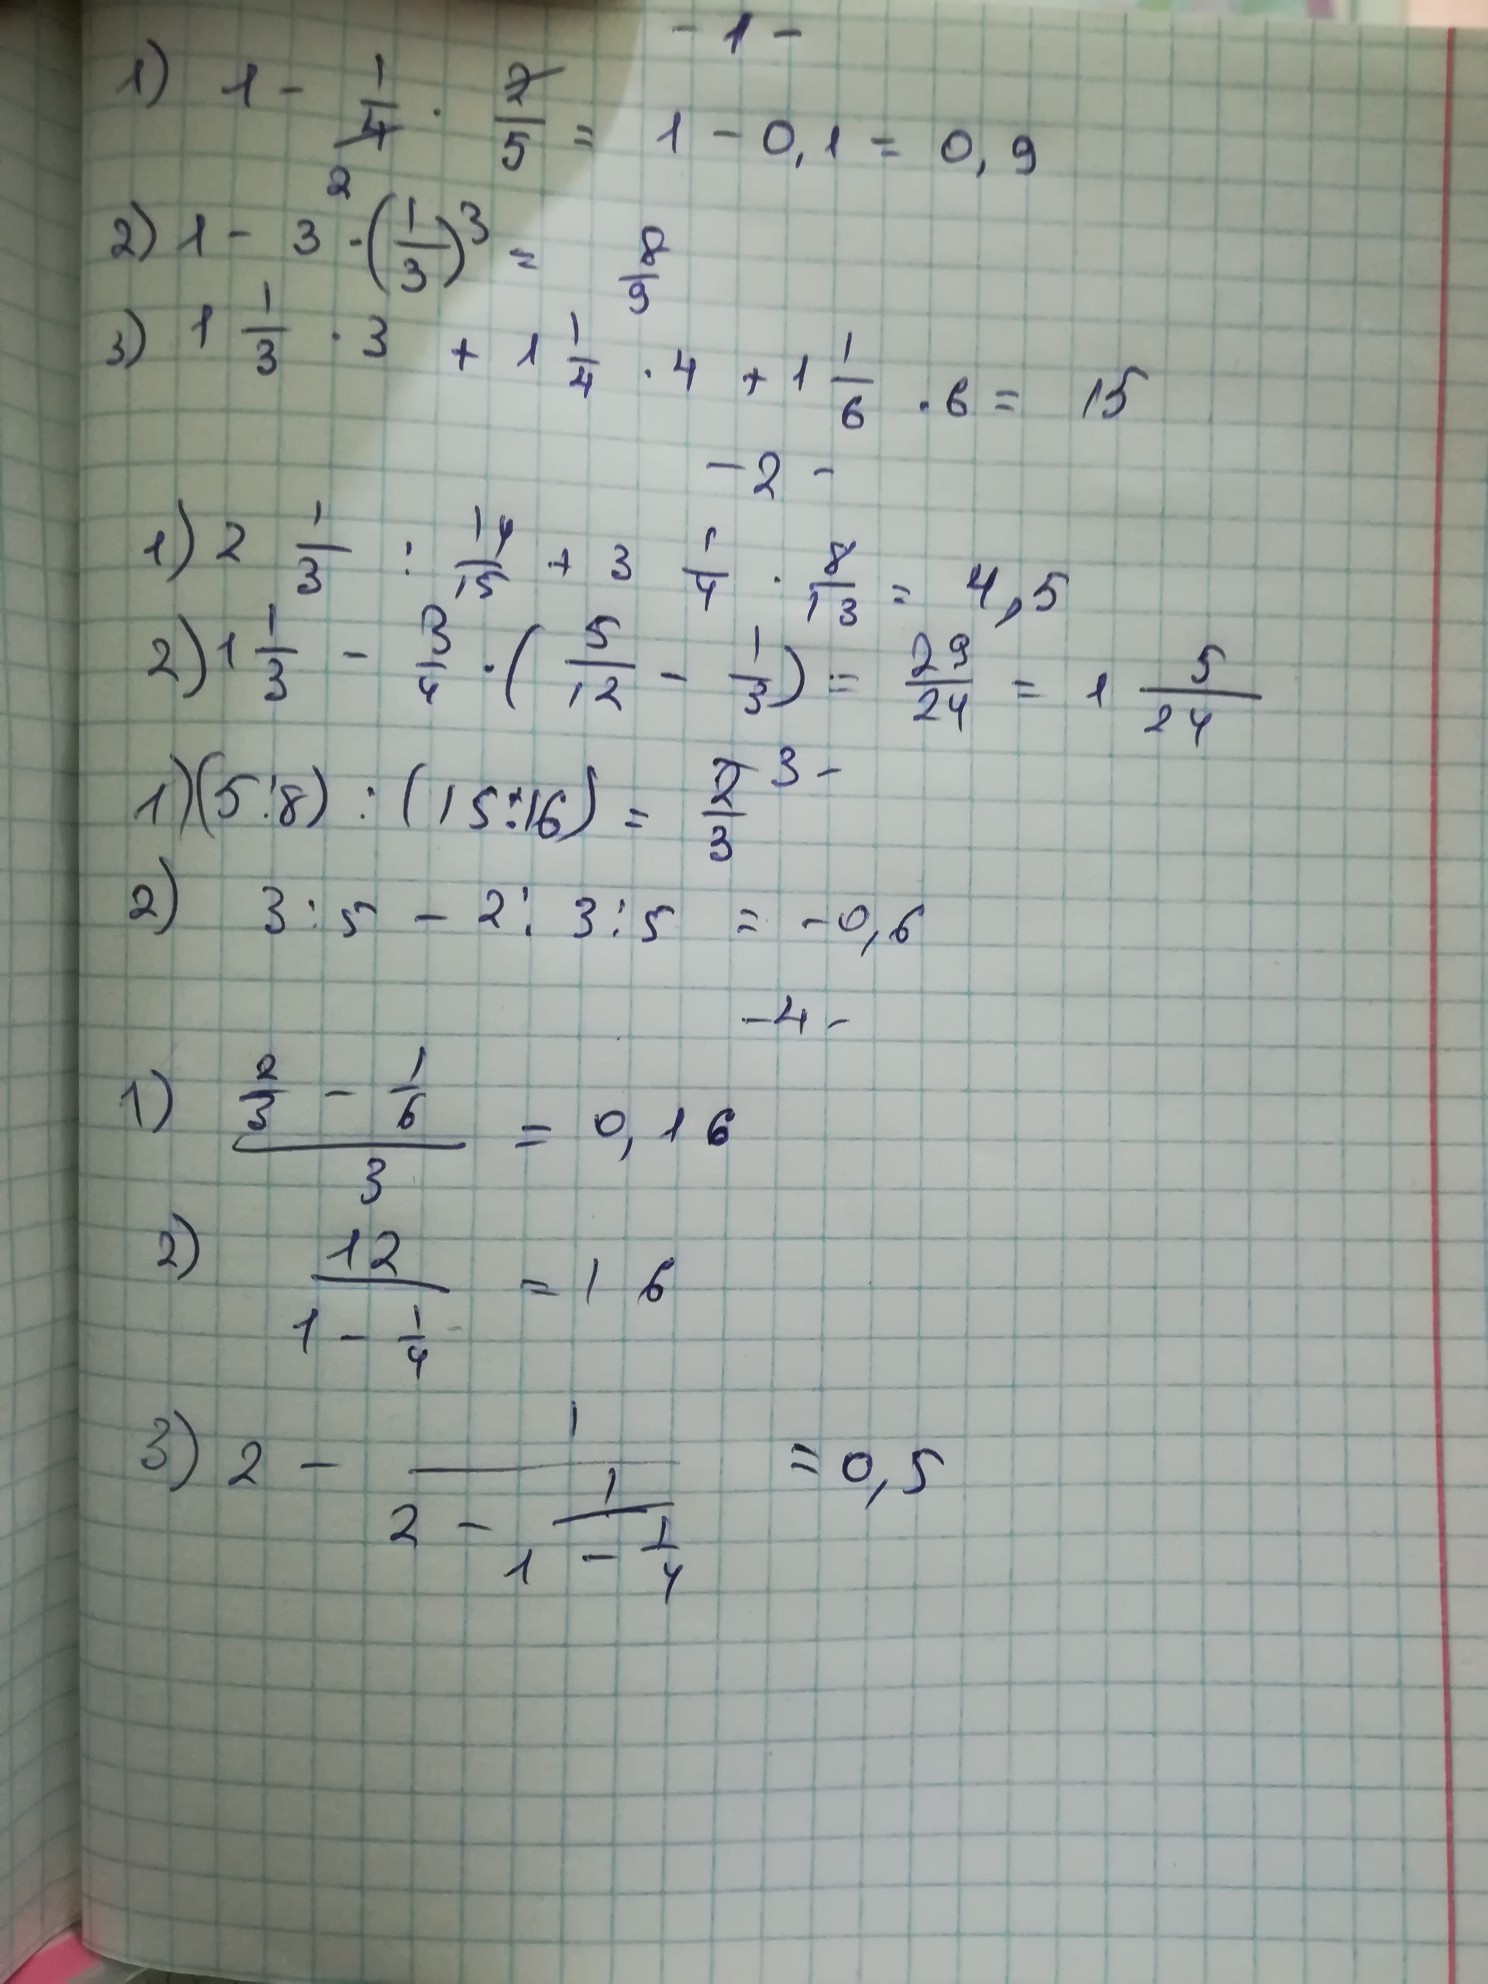 - 1 -
1) 1 - 1/4 2 · 2/5 = 1 - 0,1 = 0,9
2) 1 - 3 · (1/3)^3 = 8/9
3) 1 1/3 · 3 + 1 1/4 · 4 + 1 1/6 · 6 = 15
- 2 -
1) 2 1/3 : 14/15 + 3 1/4 · 8/13 = 4,5
2) 1 1/3 - 3/4 · (5/12 - 1/3) = 29/24 = 1 5/24
3 -
1) (5:8) : (15:16) = 2/3
2) 3:5 - 2:3:5 = -0,6
- 4 -
1) (2/3 - 1/6)/3 = 0,16
2) 12/(1 - 1/4) = 16
3) 2 - 1/(2 - 1/(1 - 1/4)) = 0,5